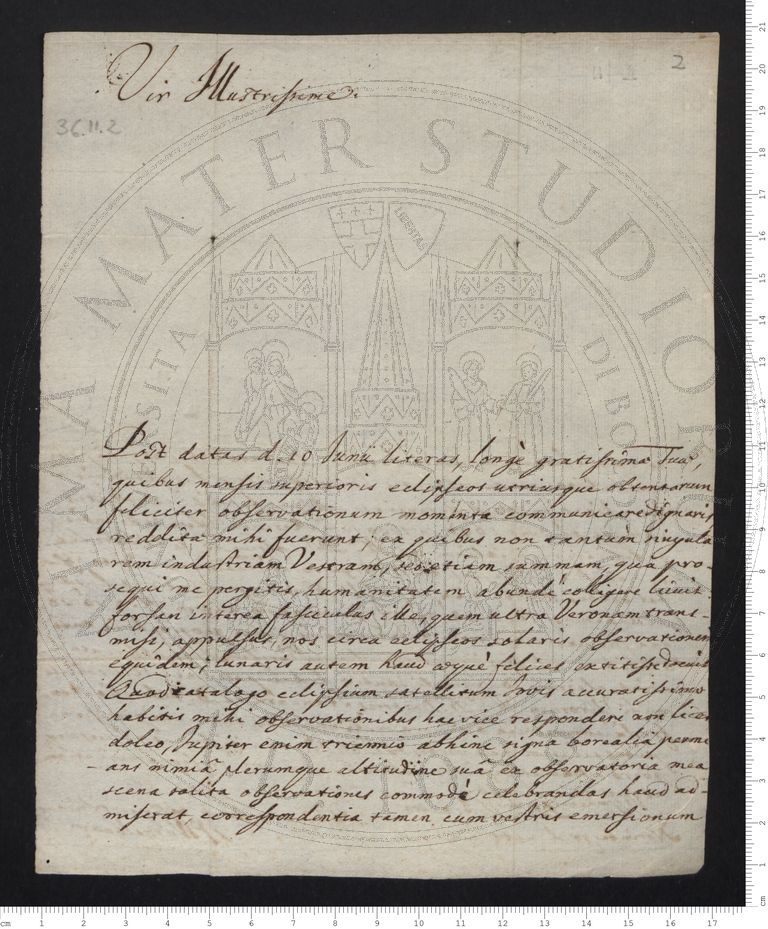 2
Vir Illustrissime.
36.II.2
Post datas d. 10 Junii literas, longè gratissimae Tuae,
quibus mensis superioris eclipseos utriusque obtentarum
feliciter observationum momenta communicare dignaris
reddita mihi fuerunt; ex quibus non tantum singula
rem industriam Vestram, sed etiam summam, quâ pro-
sequi me pergitis, humanitatem abundè colligere licuit
forsan interea fasciculus ille, quem ultra Veronam trans-
misi, appulsus, nos circa eclipseos solaris observationem
equidem, lunaris autem haud aequè felices extitisse docuit
Quod catalogo eclipsium satellitum Jovis accuratissimo
habitis mihi observationibus hac vice respondere non licet
doleo, Jupiter enim triennio abhinc signa borealia perme
ans nimiâ plerumque altitudine suâ ex observatoria mea
scena solita observationes commodè celebrandas haud ad-
miserat, correspondentia tamen cum vestris emersionum
ALMA MATER STUDIOR
LIBERTAS